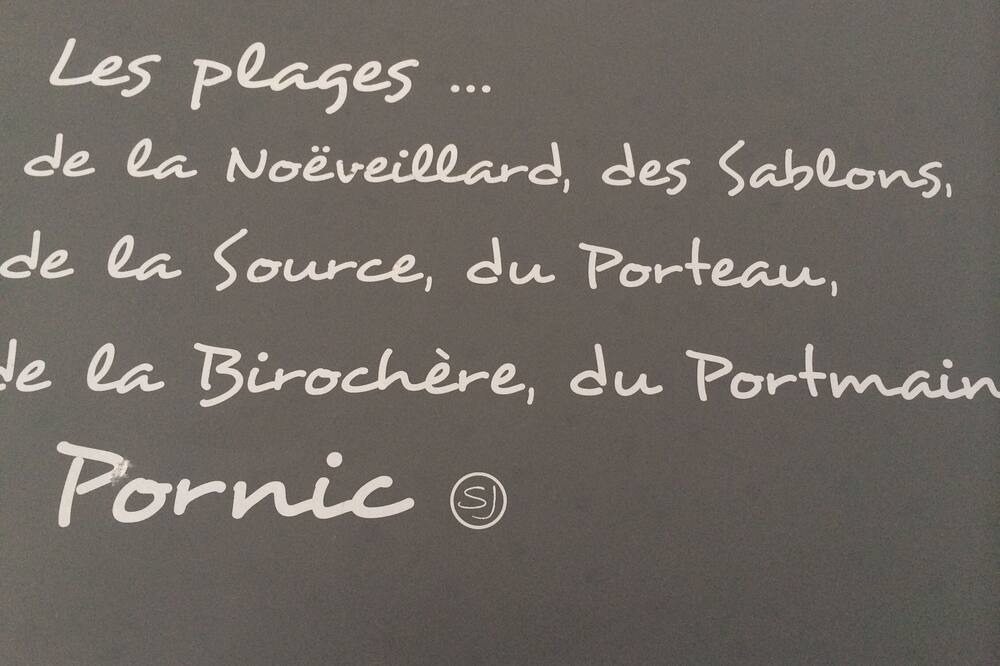 Les plages ...
de la Noëveillard, des Sablons,
de la Source, du Porteau,
de la Birochère, du Portmain
Pornic SJ